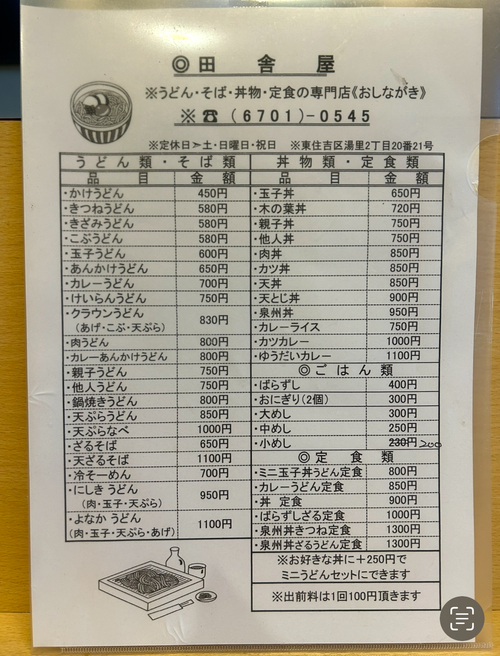 ◎田舎屋
※うどん・そば・丼物・定食の専門店《おしながき》
※☎(6701)-0545
※定休日➣土・日曜日・祝日 ※東住吉区湯里2丁目20番21号
うどん類・そば類
品目 金額
・かけうどん 450円
・きつねうどん 580円
・きざみうどん 580円
・こぶうどん 580円
・玉子うどん 600円
・あんかけうどん 650円
・カレーうどん 700円
・けいらんうどん 750円
・クラウンうどん 830円
(あげ・こぶ・天ぷら)
・肉うどん 800円
・カレーあんかけうどん 800円
・親子うどん 750円
・他人うどん 750円
・鍋焼きうどん 800円
・天ぷらうどん 850円
・天ぷらなべ 1000円
・ざるそば 650円
・天ざるそば 1100円
・冷そーめん 700円
・にしき うどん 950円
(肉・玉子・天ぷら)
・よなか うどん 1100円
(肉・玉子・天ぷら・あげ)
丼物類・定食類
品目 金額
・玉子丼 650円
・木の葉丼 720円
・親子丼 750円
・他人丼 750円
・肉丼 850円
・カツ丼 850円
・天丼 850円
・天とじ丼 900円
・泉州丼 950円
・カレーライス 750円
・カツカレー 1000円
・ゆうだいカレー 1100円
◎ごはん類
・ばらずし 400円
・おにぎり(2個) 300円
・大めし 300円
・中めし 250円
・小めし 230円 200
◎定食類
・ミニ玉子丼うどん定食 800円
・カレーうどん定食 850円
・丼 定食 900円
・ばらずしざる定食 1000円
・泉州丼きつね定食 1300円
・泉州丼ざるうどん定食 1300円
※お好きな丼に+250円で
ミニうどんセットにできます
※出前料は1回100円頂きます